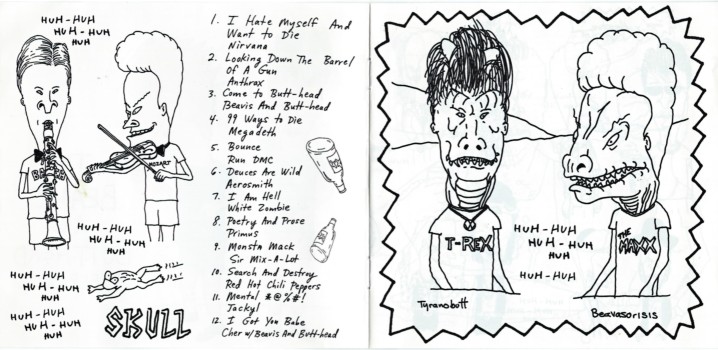 HUH-HUH
HUH-HUH
HUH
MOZART
HUH-HUH
HUH-HUH
HUH
HUH-HUH
HUH-HUH
HUH
HUH-HUH
HUH-HUH
HUH
SKULL
1. I Hate Myself And
Want to Die
Nirvana
2. Looking Down The Barrel
Of A Gun
Anthrax
3. Come to Butt-head
Beavis And Butt-head
4. 99 Ways to Die
Megadeth
5. Bounce
Run DMC
6. Deuces Are Wild
Aerosmith
7. I Am Hell
White Zombie
8. Poetry And Prose
Primus
9. Monsta Mack
Sir Mix-A-Lot
10. Search And Destroy
Red Hot Chili Peppers
11. Mental *@%#!
Jackyl
12. I Got You Babe
Cher w/Beavis And Butt-head
T-REX
THE
MAXX
HUH-HUH
HUH-HUH
HUH
HUH-HUH
Tyranobutt
Beavasorisis